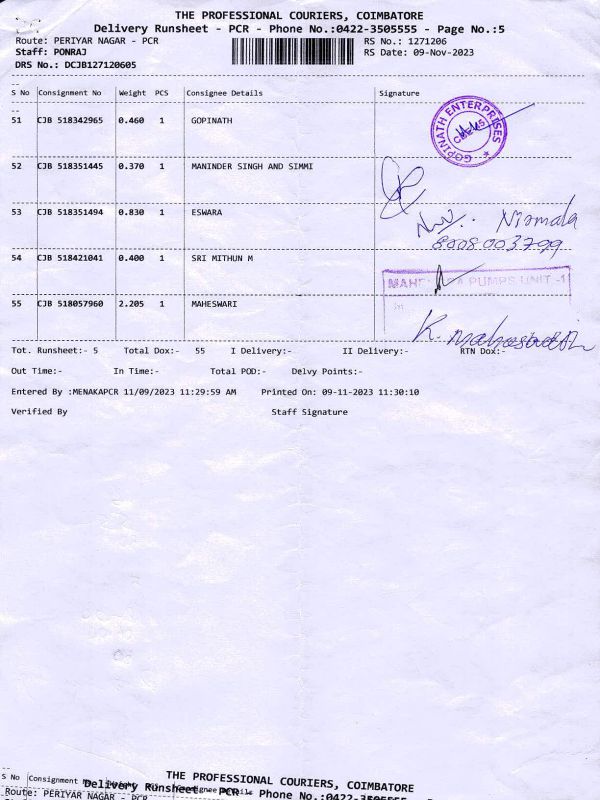 THE PROFESSIONAL COURIERS, COIMBATORE
Delivery Runsheet - PCR - Phone No.:0422-3505555 - Page No.:5
Route: PERIYAR NAGAR - PCR RS No.: 1271206
Staff: PONRAJ RS Date: 09-Nov-2023
DRS No.: DCJB127120605
S No Consignment No Weight PCS Consignee Details Signature
51 CJB 518342965 0.460 1 GOPINATH
GOPINATH ENTERPRISES
52 CJB 518351445 0.370 1 MANINDER SINGH AND SIMMI
53 CJB 518351494 0.830 1 ESWARA Nirmala
8008003799.
54 CJB 518421041 0.400 1 SRI MITHUN M
PUMPS UNIT -1
55 CJB 518057960 2.205 1 MAHESWARI
K.
Tot. Runsheet:- 5 Total Dox:- 55 I Delivery:- II Delivery:- RTN Dox:-
Out Time:- In Time:- Total POD:- Delvy Points:-
Entered By :MENAKAPCR 11/09/2023 11:29:59 AM Printed On: 09-11-2023 11:30:10
Verified By Staff Signature
THE PROFESSIONAL COURIERS, COIMBATORE
S No Consignment
Delivery Runsheet - PCR - Phone No.:0422-3505555
Route: PERIYAR NAGAR - PCR